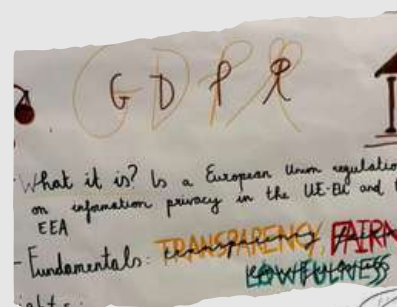 GDPR
- What it is? Is a European Union regulatio
on information privacy in the UE-EU and
EEA
- Fundamentals: TRANSPARENCY, FAIRN
LOWFULNESS
ights: